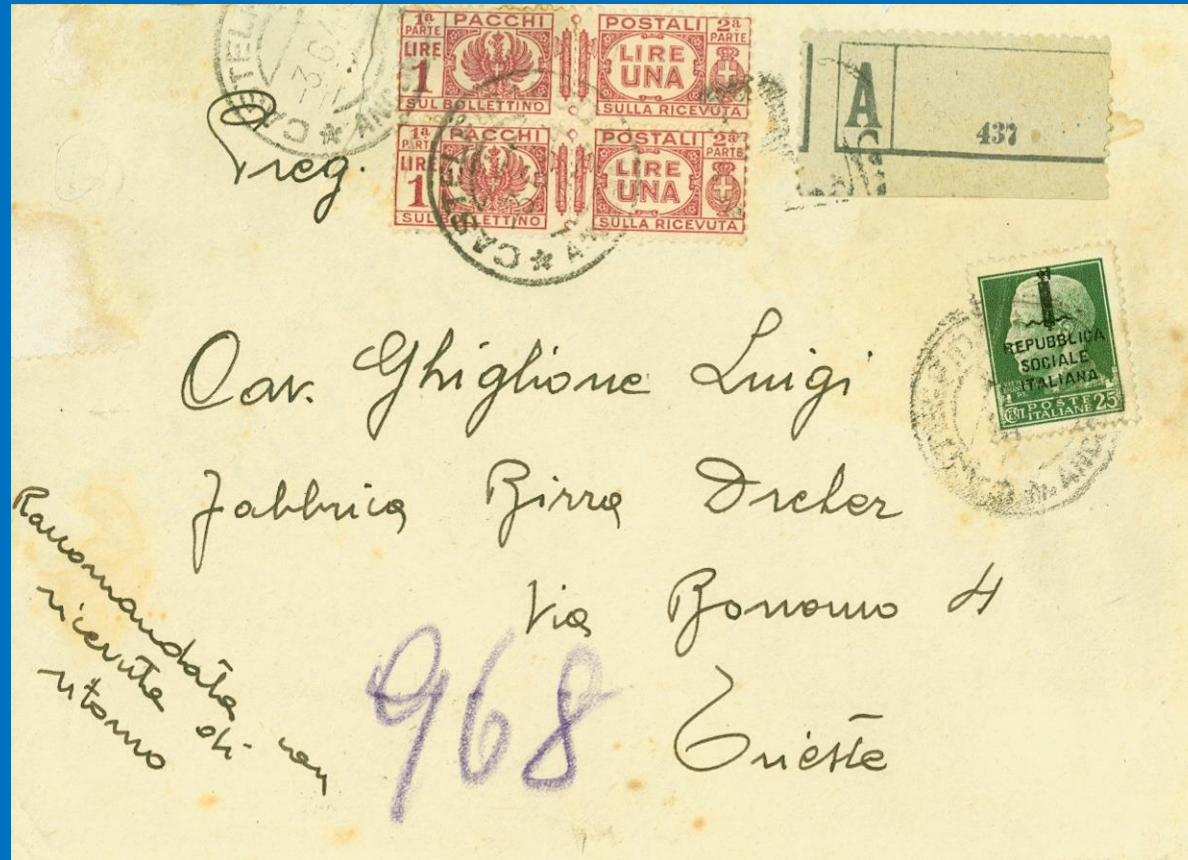 1ª PARTE PACCHI POSTALI 2ª PARTE
LIRE 1 LIRE UNA
SUL BOLLETTINO SULLA RICEVUTA
1ª PARTE PACCHI POSTALI 2ª PARTE
LIRE 1 LIRE UNA
SUL BOLLETTINO SULLA RICEVUTA
A
437
Preg.
REPUBBLICA
SOCIALE
ITALIANA
POSTE
ITALIANE 25
Cav. Ghiglione Luigi
Fabbrica Birra Dreher
Via Bonomo 4
Trieste
Raccomandata con
ricevuta di
ritorno
968